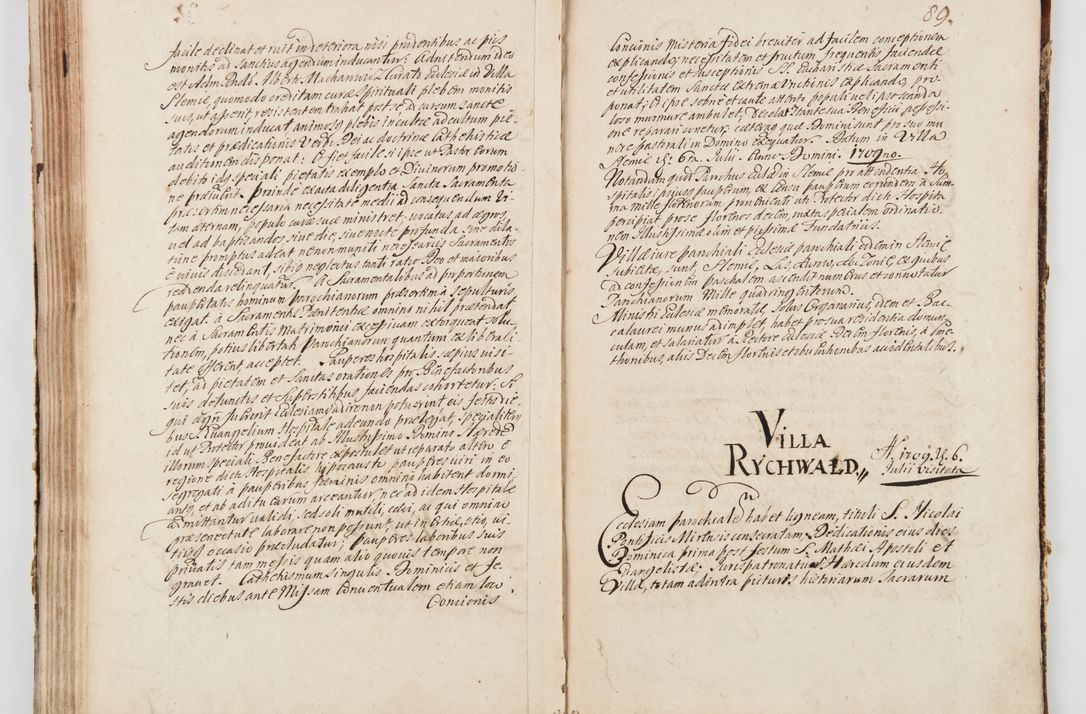 facile declinat et ruit in deteriora nisi prudentibus ac piis
monitis ad sanctius agendum inducantur: Admittendum ideo
est Adm: Rndo. Alberto Curato Ecclesiæ in Villa
Slemie, quomodo creditam curæ spirituali plebem monitis
suis, ut assent, resistentem trahat per se id cursum sancte
agendorum inducat animos plebis incultæ ad cultum pie-
tatis et prædicationis Verbi Dei ac doctrinæ Cathechisticæ
auditionem disponat: & fiet facile si ipse ut Pastor eorum
debito ids speciali pietatis exemplo et Divinorum promotio-
ne præluxit. Proinde exacta diligentia Sancta Sacramenta
præsertim necessaria necessitate medii ad consequendum Vi-
tam æternam, populo curæ suæ ministret, vocatus ad ægros
vel ad baptisandos sine die, sive nocte profunda sine dila-
tione promptus adeat ne non muniti necessariis Sacramentis
è vivis discedant, sibi neglectus tanti ratio Deo et majoribus
reddenda relinquatur. A Sacramentalibus ad proportionem
paupertatis hominum parochianorum præsertim à sepulturis
exigat. à Sacramento Pœnitentiæ omnino nihil prætendat
nec à Sacramentis Matrimonii excessivam extorqueat solu-
tionem, potius libertati parochianorum quantum ex liberali-
tate offerent acceptet. Pauperes hospitalis sæpius visi-
tet, ad pietatem et Sanctas orationes pro Benefactoribus
suis defunctis et superstitibus faciendas cohortetur: Si
qui ægri fuerint Ecclesiam adire non potuerint eis festis die-
bus Evangelium Hospitale adeundo prælegat, specialiter
id ut Protector provideat ab Illustrissimo Domino Hærede
illorum speciali Benefactore expostulet ut reparato altero è
regione dicti Hospitalis hipocausto pauperes viri in eo
segregati à pauperibus feminis omnino habitent dormi-
ant, et ab aditu earum arceantur, nec ad idem Hospitale
admittantur validi, sed soli mutili, cæci, ac qui omnino
præ senectute laborare non possunt, ut in ebrie, otio, vi-
tiisque occasio præcludatur; pauperes laboribus suis
privatis tam messis quam alio quovis tempore non
gravet. Cathechismum singulis Dominicis et fe-
stis diebus ante Missam Conventualem etiam loco
Concionis
89.
Concionis misteria fidei breviter ad facilem conceptionem
explicando, necessitatem et fructum frequentis faciendæ
confessionis et susceptionis SS. Eucharistiæ Sacramenti
et utilitatem Sanctæ extremæ Unctionis explicando, pro-
ponat; & ipse sobrie et caute absente populi vel ipse scanda-
loso murmure ambulet, Desolatas tantes suæ Beneficii possessi-
one reparari conetur, cæteraque quæ Dominii sunt pro suo mu-
nere pastrali in Domino exequatur. Datum in Villa
Slemie d: 6ta Julii Anno Domini 1709no.
Notandum quod Parochus Ecclesiæ in Slemie pro attendentia Ho-
spitalis ipsiusque pauperum, ex censu pauperum eorundem à sum-
ma mille florenorum provenienti uti Protector dicti Hospita-
percipiat pro se florenos decem, juxta specialem ordinatio-
nem Illustrissimæ olim et piissimæ Fundatricis.
Villæ jure parochiali Ecclesiæ parochiali eidem in Slemie
subjectæ sunt, Slemie, Las, Kurow, Kocunie, ex quibus
ad confessionem paschalem ascendit numerus et connumeratur
Parochianorum Mille quadringentorum.
Ministri Ecclesiæ memoratæ, Solus Organarius, idem et Bac-
calaurei munus adimplet, habet pro sua residentia domun-
culam, et salariatur à Rectore Ecclesiæ Decem florenis, à fame-
thoribus, aliis Decem florenis et tribulionibus accidentalibus.
VILLA
RYCHWAŁD
A. 1709. d. 6.
Julii visitata
Ecclesiam parochialem habet ligneam, tituli S. Nicolai
Pontificis Mirensis consecratam, Dedicationis eius dies
Dominica prima post festum S. Mathæi Apostoli et
Evangelistæ, Juris patronatus Hæredum eiusdem
Villæ, totam ad intra picturis historiarum Sacrarum